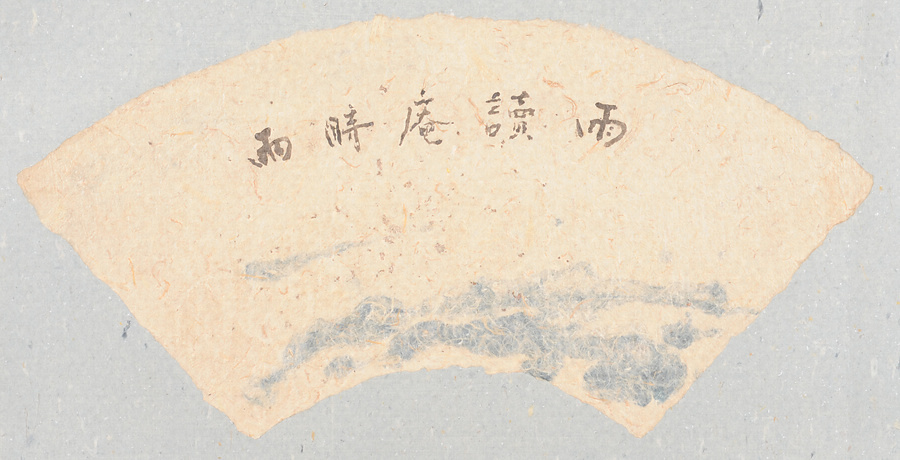 雨讀庵時雨